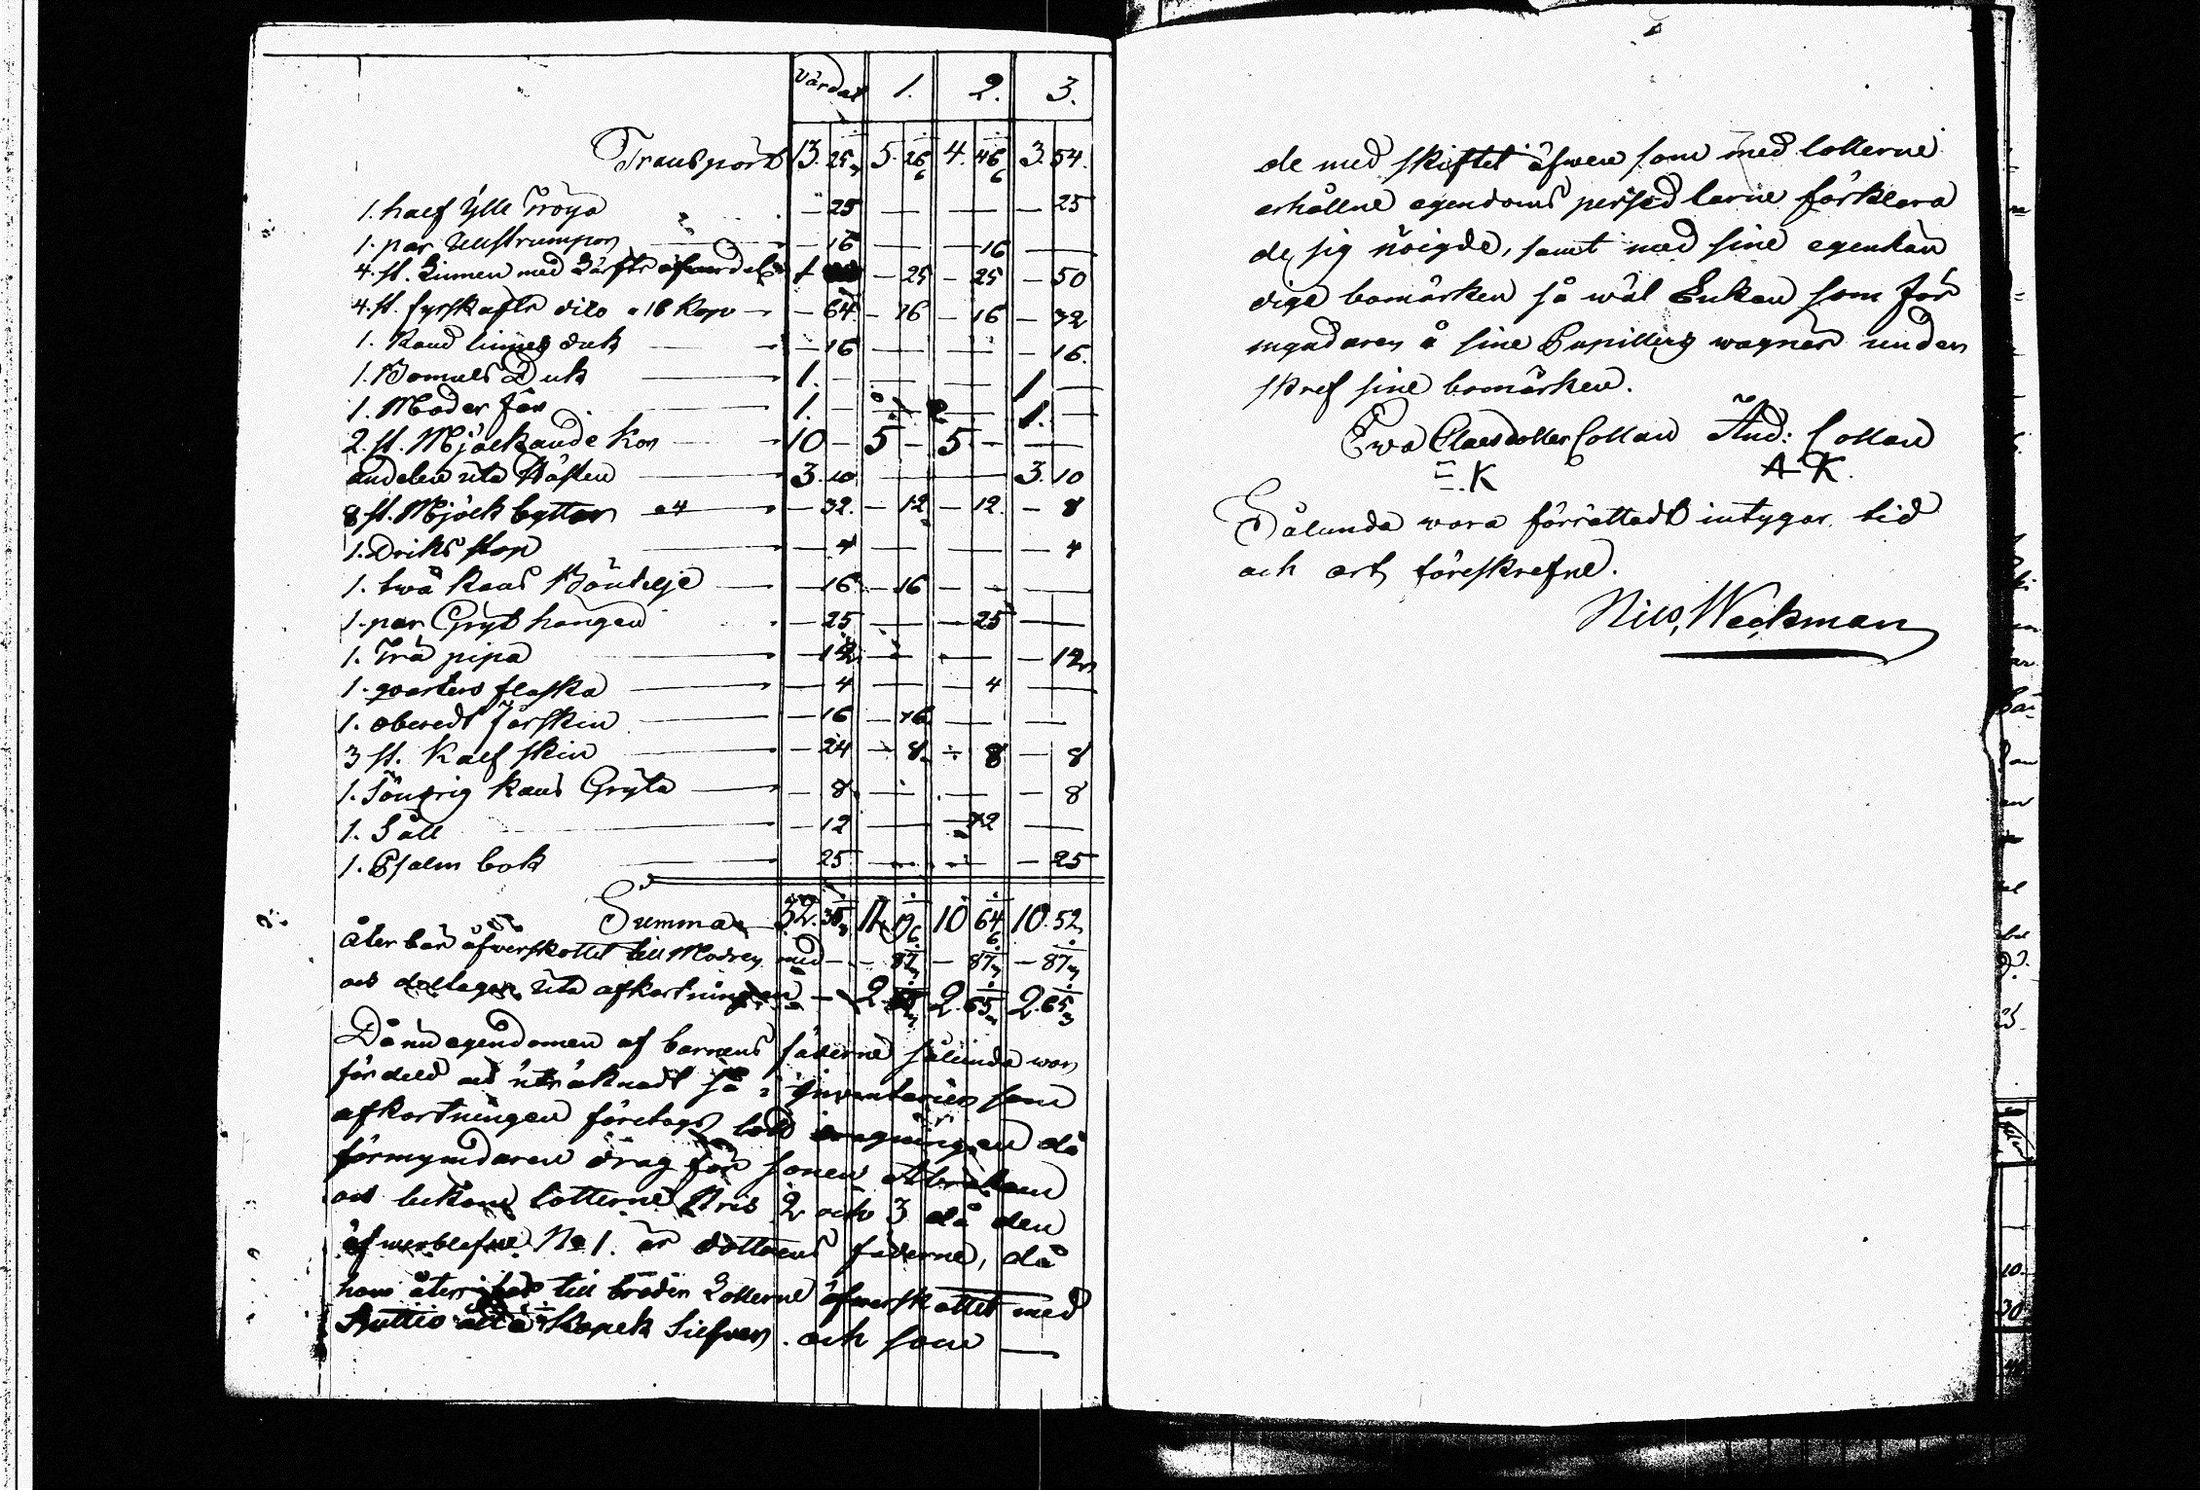 Värdet 1. 2. 3.
Transport 13. 25 5. 26 4. 46 3. 54.
1. half ylle Tröya — 25 — — — 25
1. par Ullstrumpor — 16 — — 16 —
4. st. Linnen med Lärfts öfverdel 1 — 25 — 25 — 50
4. st. fyrskafts dito a 16 Kop — 64 — 16 — 16 — 32
1. Rand linnes duk — 16 — — — 16.
1. Bomuls Duk 1. — — — 1 —
1. Moder får 1. — — — 1. —
2. st. Mjölkande Kor 10 — 5 — 5 — —
andelen uta Hästen 3. 10 — — 3. 10
8 st. Mjölk byttor a 4 — 32. — 12 — 12. — 8
1. Driks stop — 4 — — — 4
1. två kans Bôutelje — 16 — 16 — — —
1. par Gryt hängen — 25 — — 25 —
1. Trä pipa — 12 — — — 12
1. qvarters flaska — 4 — — 4 —
1. oberedt Fårskin — 16 — 16 — —
3 st. Kalf skin — 24 — 8 — 8 — 8
1. Söndrig kans Gryta — 8 — — — 8
1. Såll — 12 — — 12 —
1. Psalm bok — 25 — — — 25
Summa 32. 11. 10 64 10. 52
åter bär öfverskottet till Modren med — — 87 — 87 — 87
och uta afkortningen — 2 2. 65 2. 65
Då nu egendomen af barnens fäderne sålunda war
fördeld och uträknadt så i Inventarier som
afkortningen företogs lott dragningen då
förmyndaren drog för sonen Abraham
och bekom lotterne Nris 2 och 3 då den
öfwerblefne No 1. är dottrens fäderne, då
hon åter till bröder Lotterne öfwerskottet med
Åttio åtta Kopek Silfver och som —
de med skiftet äfwen som med lotterne
erhållne egendoms persedlarne förklara
de sig nöigde, samt med sine egenhän
dige bomärken så wäl Enkan som För
myndaren å sine Pupillers wägnar under
skref sine bomärken.
Ewa Claesdotter Collan And: Collan
E. K A K.
Sålunda wara förrättadt intygar tid
och ort föreskrefne.
Nils, Weckman